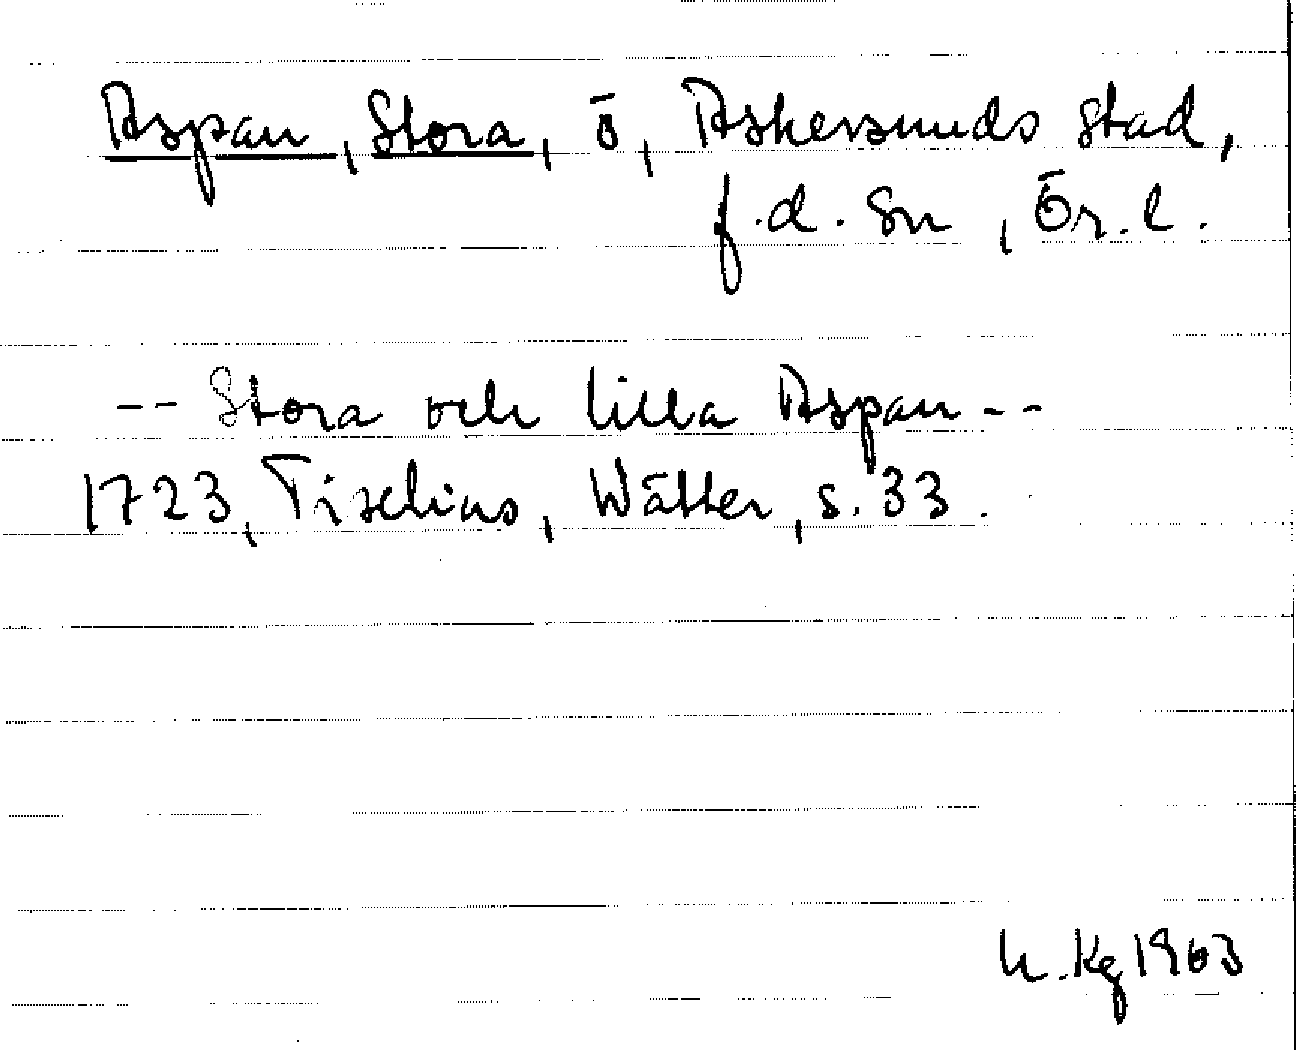 Aspan, Stora, ö, Askersunds stad,
f.d. sn, Ör.l.
-- Stora och lilla Aspan --
1723, Tiselius, Wätter, s. 33.
h. Kg 1963